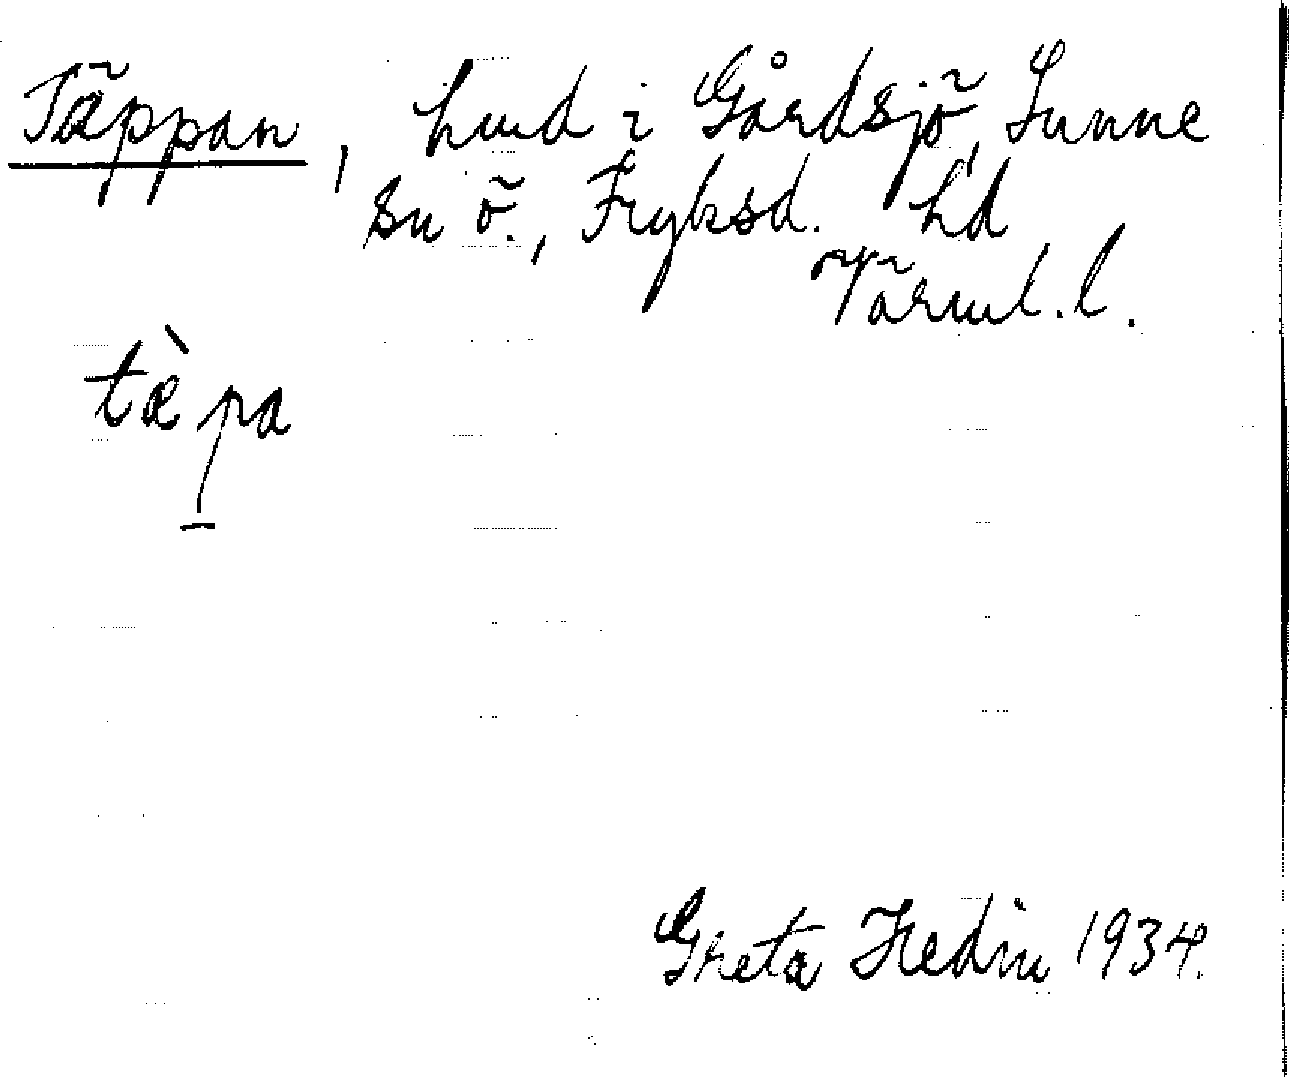 Täppan, hmd i Gårdsjö, Sunne
sn ö., Fryksd. hd
Värml. l.
tæ̀pa
Greta Hedin 1934.